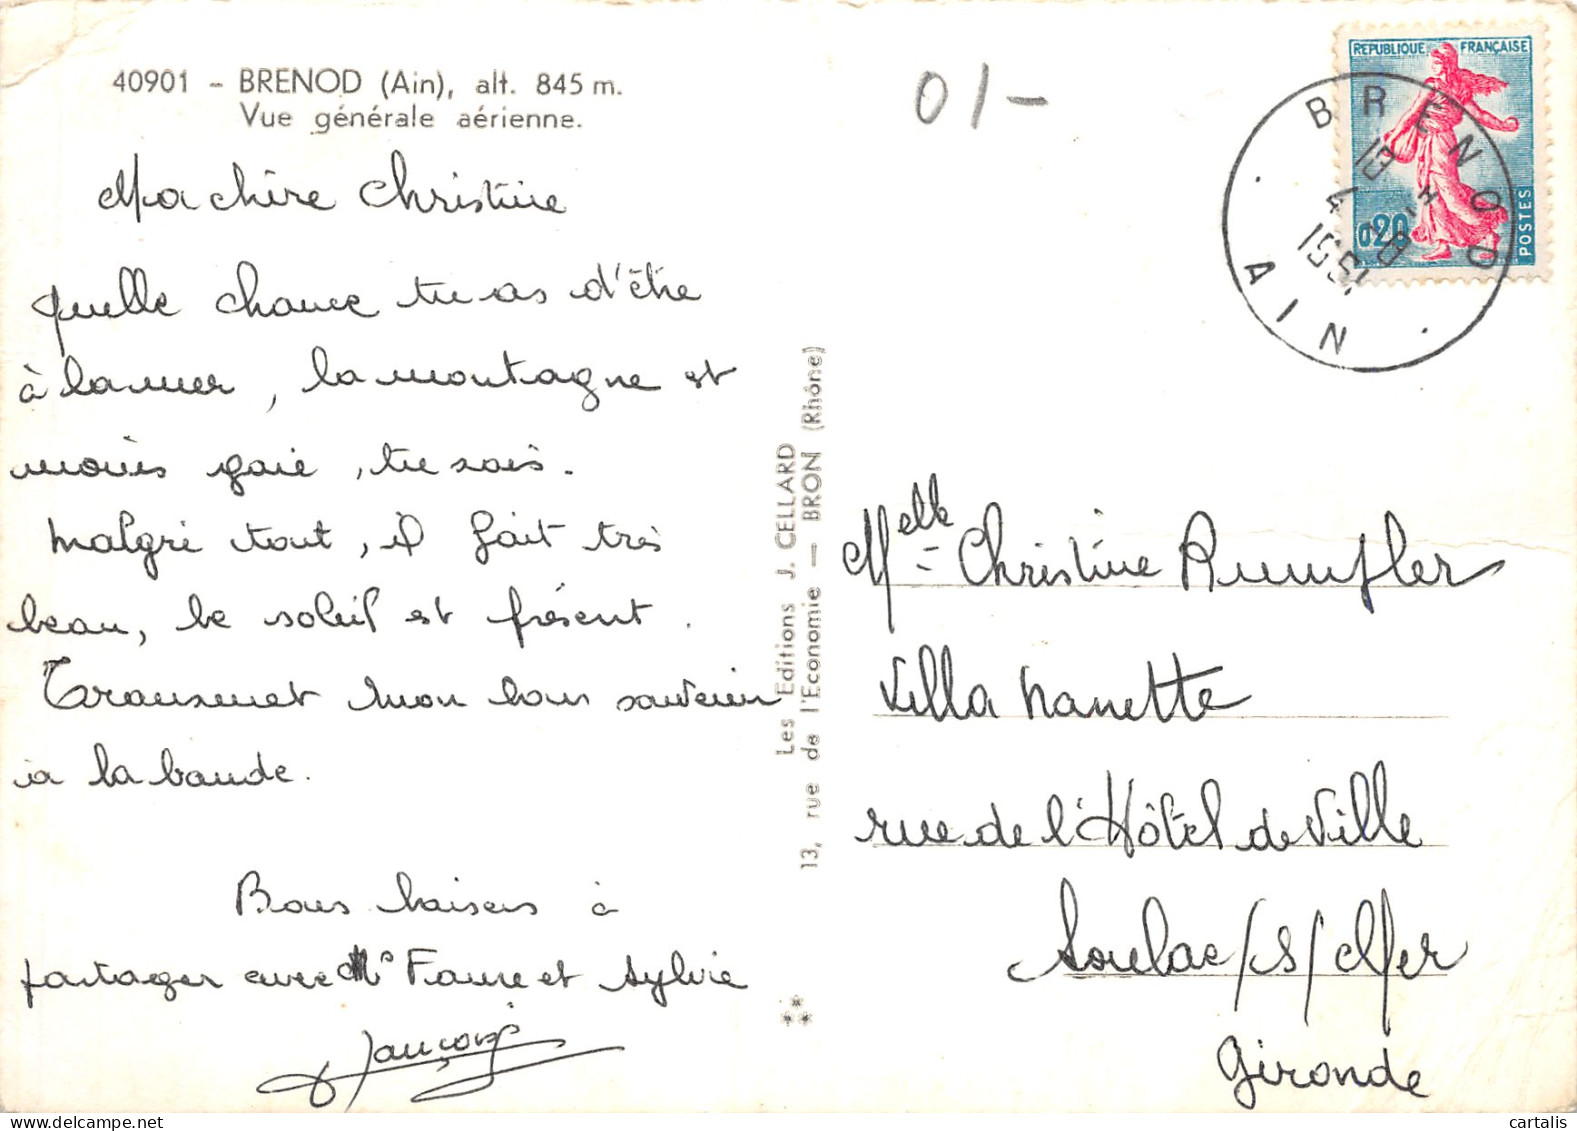 40901 - BRENOD (Ain), alt. 845 m.
Vue générale aérienne.
01-
REPUBLIQUE FRANÇAISE
0,20
POSTES
BRENOD
AIN
Ma chère Christine
quelle chance tu as d'être
à la mer, la montagne est
moins gaie, tu sais.
Malgré tout, il fait très
beau, le soleil est présent.
Transmet mon bon souvenir
à la bande.
Bons baisers à
partager avec Faure et Sylvie
Les Editions J. CELLARD
13, rue de l'Economie — BRON (Rhône)
Melle Christine Rumpler
Villa Nanette
rue de l'Hôtel de Ville
Soulac/S/Mer
Gironde
cartalis